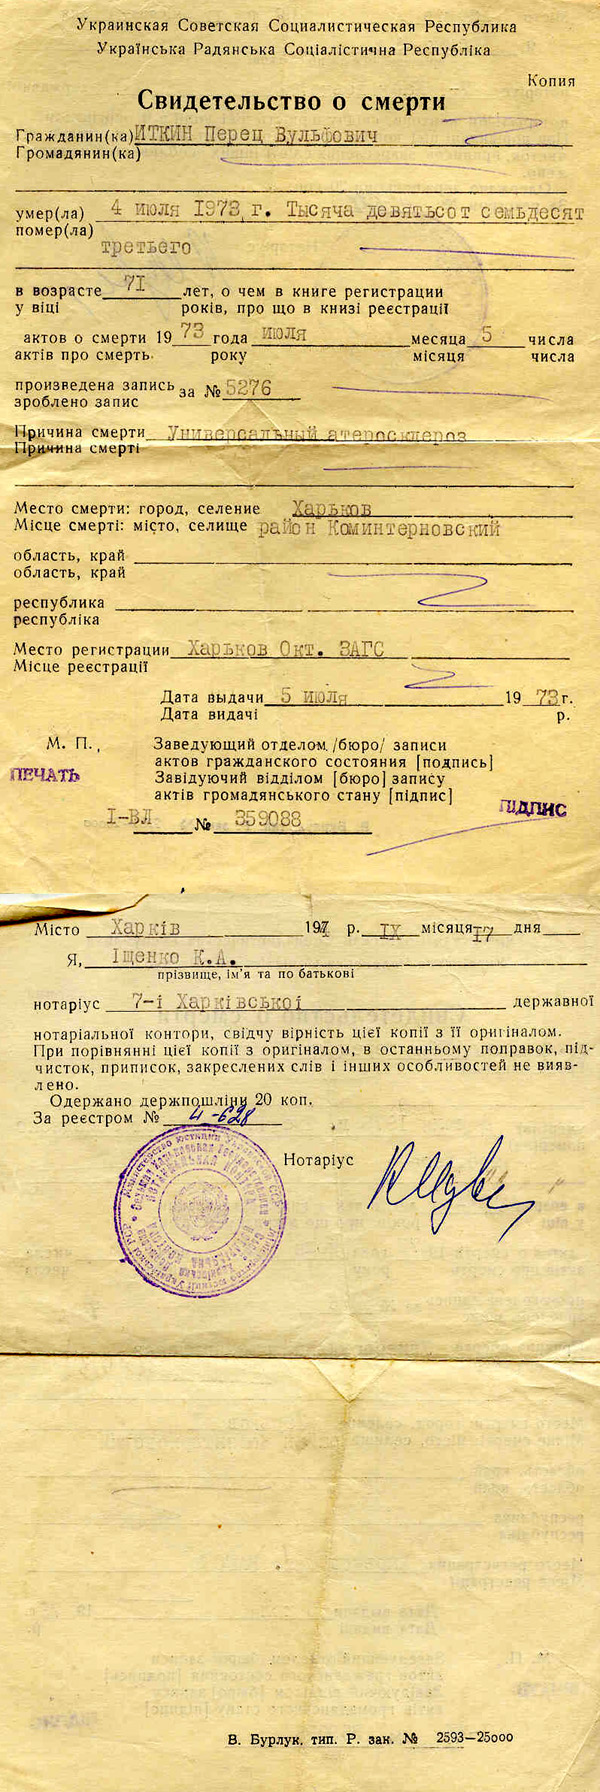 Украинская Советская Социалистическая Республика
Українська Радянська Соціалістична Республіка
Копия
Свидетельство о смерти
Гражданин(ка) ИТКИН Перец Вульфович
Громадянин(ка)
умер(ла) 4 июля 1973 г. Тысяча девятьсот семьдесят
помер(ла)
третьего
в возрасте 71 лет, о чем в книге регистрации
у віці років, про що в книзі реєстрації
актов о смерти 1973 года июля месяца 5 числа
актів про смерть року місяця числа
произведена запись за № 5276
зроблено запис
Причина смерти Универсальный атеросклероз
Причина смерті
Место смерти: город, селение Харьков
Місце смерті: місто, селище район Коминтерновский
область, край
область, край
республика
республіка
Место регистрации Харьков Окт. ЗАГС
Місце реєстрації
Дата выдачи 5 июля 1973 г.
Дата видачі р.
М. П., Заведующий отделом /бюро/ записи
актов гражданского состояния [подпись]
ПЕЧАТЬ Завідуючий відділом [бюро] запису
актів громадянського стану [підпис]
ПІДПИС
I-ВЛ № 359088
Місто Харків 197 р. IX місяця 17 дня
Я, Іщенко К.А.
прізвище, ім'я та по батькові
нотаріус 7-і Харківської державної
нотаріальної контори, свідчу вірність цієї копії з її оригіналом.
При порівнянні цієї копії з оригіналом, в останньому поправок, під-
чисток, приписок, закреслених слів і інших особливостей не вияв-
лено.
Одержано держпошліни 20 коп.
За реестром № 4-628
Нотаріус
В. Бурлук. тип. Р. зак. № 2593—25000